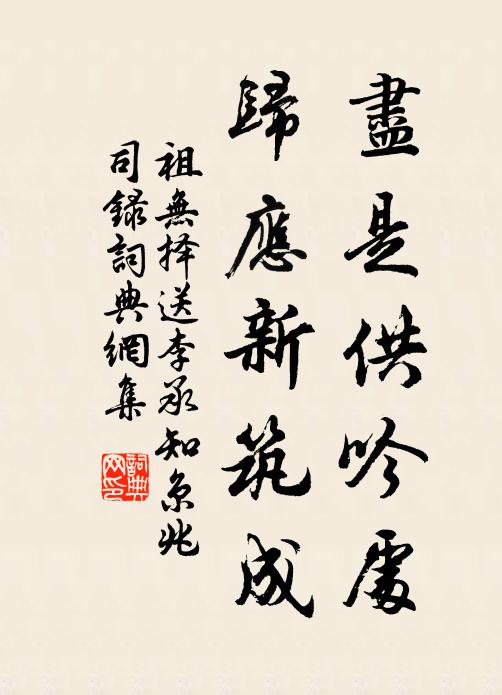 盡是供吟處
歸應新筑成
祖無择送李承知京兆
司錄詞典網集
詞典
网印